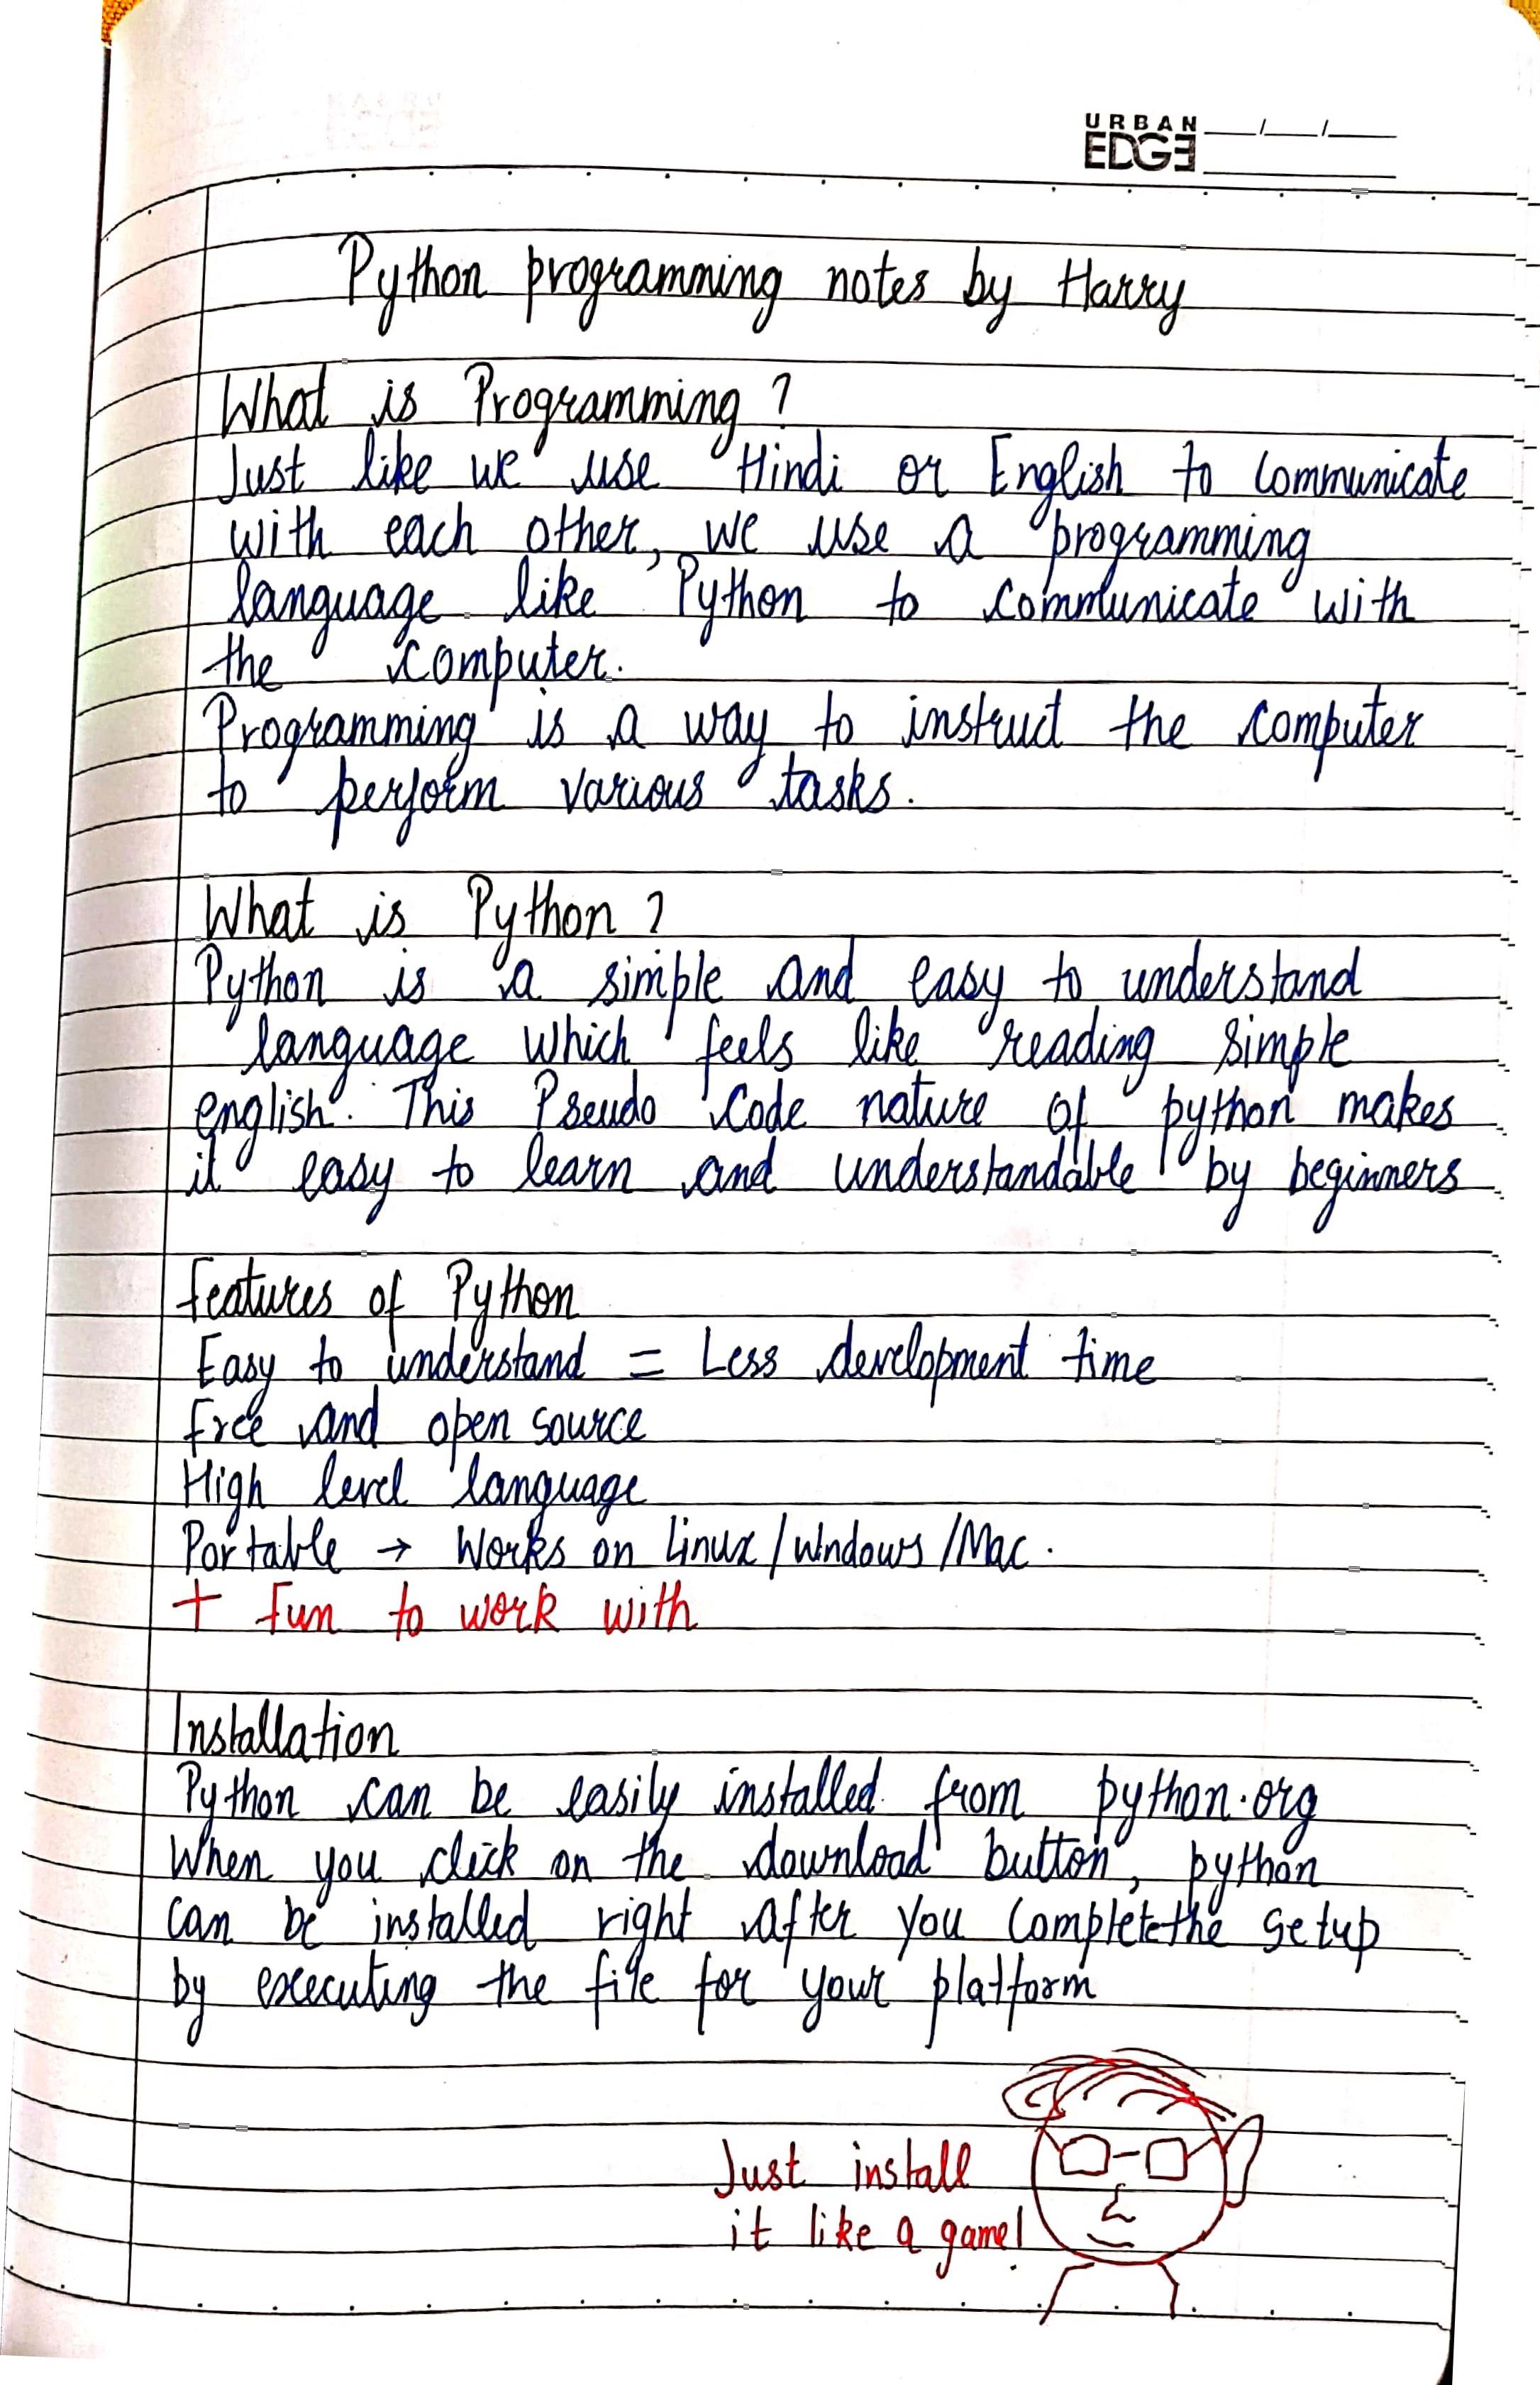 URBAN
EDGE
Python programming notes by Harry
What is Programming ?
Just like we use Hindi or English to communicate
with each other, we use a programming
language like Python to communicate with
the computer.
Programming is a way to instruct the computer
to perform various tasks.
What is Python ?
Python is a simple and easy to understand
language which feels like reading simple
english. This Pseudo code nature of python makes
it easy to learn and understandable by beginners
Features of Python
Easy to understand = Less development time
Free and open source
High level language
Portable → Works on Linux / Windows / Mac.
+ Fun to work with
Installation
Python can be easily installed from python.org
When you click on the download button, python
can be installed right after you complete the setup
by executing the file for your platform
Just install
it like a game!